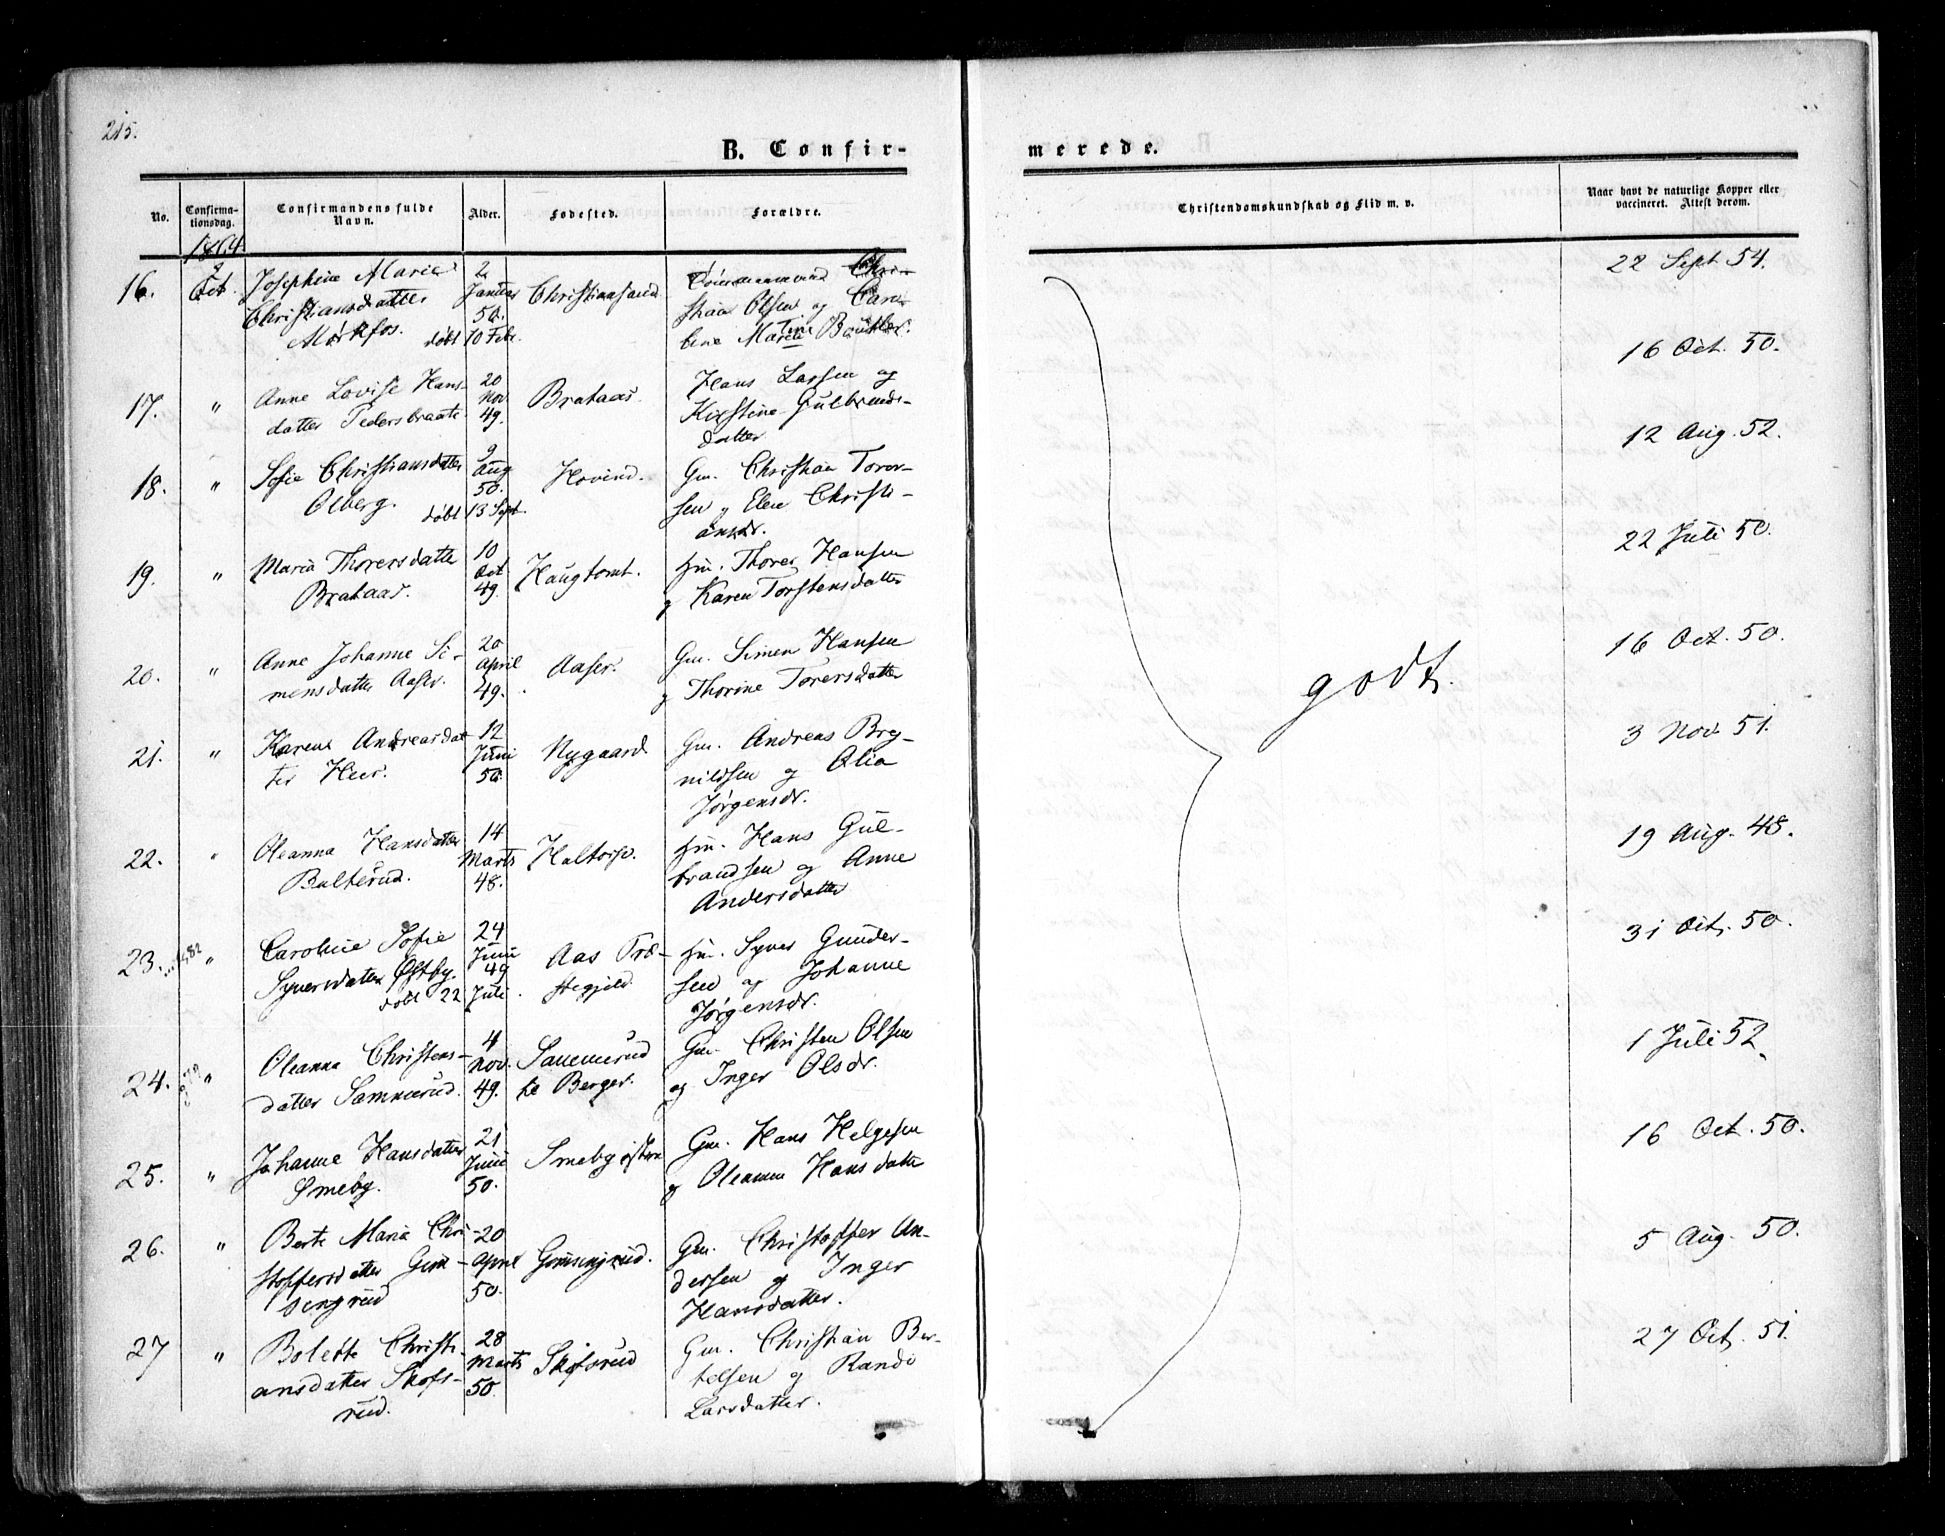 215.
B. Confir-
merede.
No.
Confirma-
tionsdag.
Confirmandens fulde
Navn.
Alder.
Fødested.
Forældre.
Christendomskundskab og Flid m. v.
Naar havt de naturlige Kopper eller
vaccineret. Attest derom.
1864
16. 2 Oct. Josephine Marie
Christiansdatter
Mørkfos.
2
Januar
50.
døbt 10 Febr.
Christiansand
Chri-
stian Olsen og Caro-
line
22 Sept 54.
17. " Anne Lovise Hans-
datter Pedersbraate
20
Nov
49.
Brataas
Hans Larsen og
Kirstine Gulbrands-
datter
16 Oct. 50.
18. " Sofie Christiansdatter
Olberg.
9
Aug
50.
døbt 13 Sept.
Hovind.
Gm. Christian Torer-
sen og Elen Christi-
ansdr.
12 Aug. 52.
19. " Maria Thorersdatter
Brataas.
10
Oct
49.
Haugtomt.
Hm. Thorer Hansen
og Karen Torstensdatter
22 Juli 50.
20. " Anne Johanne Si-
mensdatter Aaser.
20
April
49.
Aaser.
Gm. Simen Hansen
og Thorine Torersdatter
16 Oct. 50.
21. " Karene Andreasdat-
ter Heer.
12
Juni
50.
Nygaard
Gm. Andreas Bry-
nildsen og Olia
Jørgensdr.
3 Nov. 51.
22. " Oleanna Hansdatter
Bulterud.
14
Marts
48.
Haltorp.
Hm. Hans Gul-
brandsen og Anne
Andersdatter
19 Aug. 48.
23. " Caroline Sofie
Syversdatter Østby.
døbt 22 Juli
24
Juni
49
Aas Træ-
stegjeld.
Hm. Syver Gunder-
sen og Johanne
Jørgensdr.
31 Oct. 50.
24. " Oleanna Christens-
datter Sammerud.
4
Nov.
49.
Sammerud
te Berger.
Gm. Christen Olsen
og Inger Olsdr.
1 Juli 52
25. " Johanne Hansdatter
Smeby.
21
Juni
50.
Smeby østre
Gm. Hans Helgesen
og Oleanna Hansdatter
16 Oct. 50.
26. " Berte Maria Chri-
stoffersdatter Gim-
singrud
20
April
50.
Gimsingrud.
Gm. Christoffer An-
dersen og Inger
Hansdatter.
5 Aug. 50.
27 " Bolette Christi-
ansdatter Skofs-
rud.
28
Marts
50.
Skofsrud
Gm. Christian Ber-
telsen og Randi
Larsdatter.
27 Oct. 51.
godt.